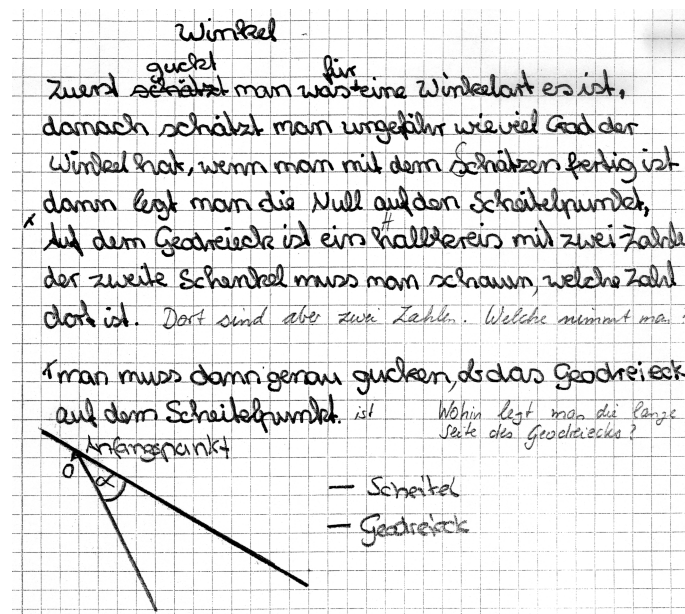 Winkel
guckt für
Zuerst schätzt man was eine Winkelart es ist,
danach schätzt man ungefähr wie viel Grad der
Winkel hat, wenn man mit dem Schätzen fertig ist
dann legt man die Null auf den Scheitelpunkt,
Auf dem Geodreieck ist ein Halbkreis mit zwei Zahle
der zweite Schenkel muss man schaun, welche Zahl
dort ist. Dort sind aber zwei Zahlen. Welche nimmt man ?
man muss dann genau gucken, ob das Geodreieck
auf dem Scheitelpunkt. ist Wohin legt man die lange
Seite des Geodreiecks?
Anfangspunkt
0
α
— Scheitel
— Geodreieck